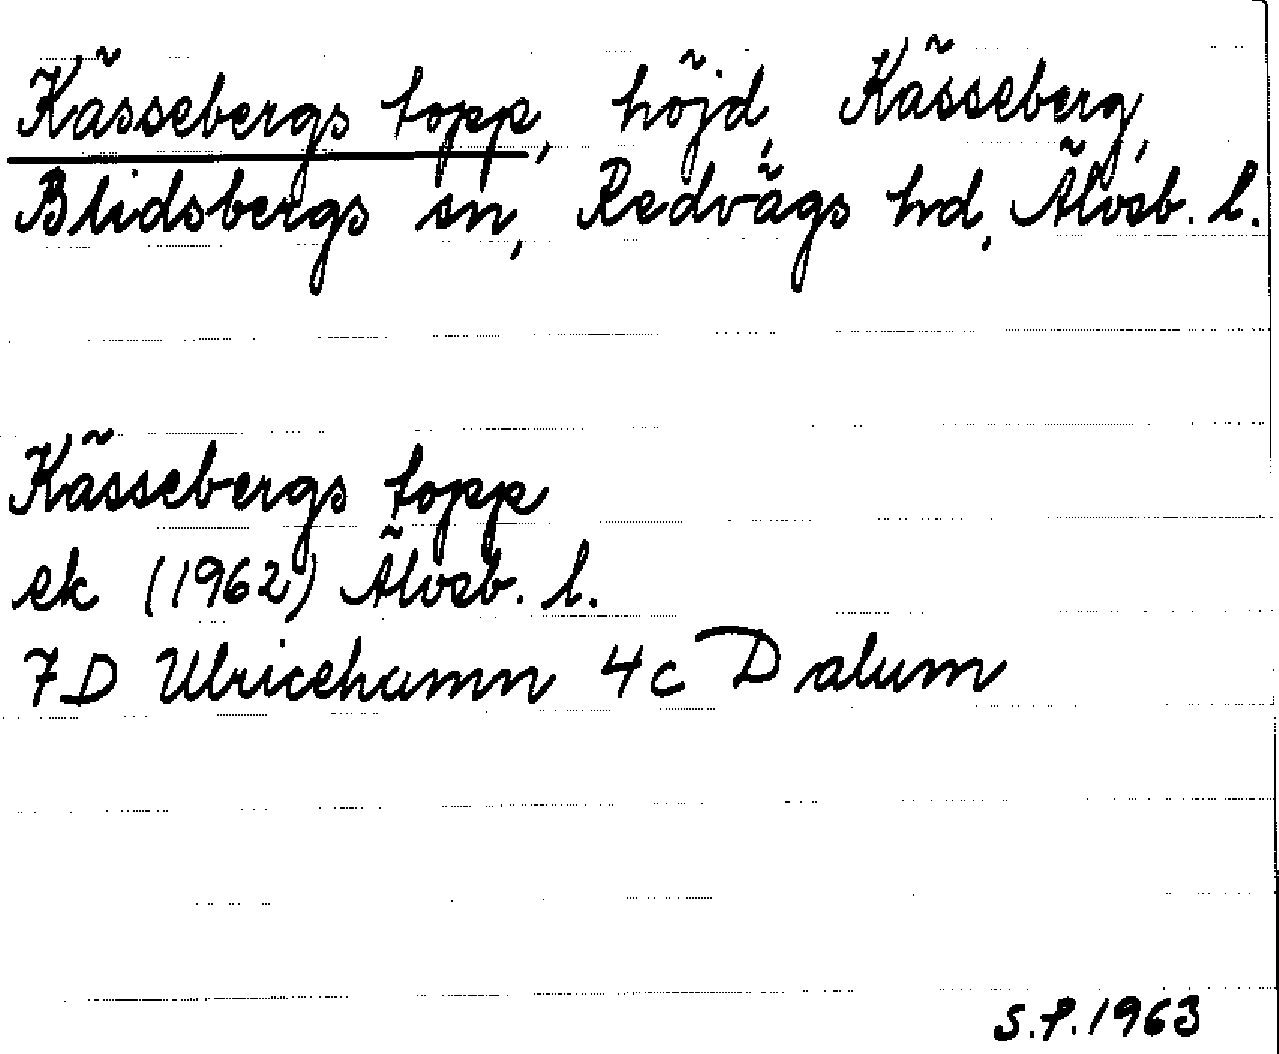 Kässebergs topp, höjd, Kässeberg,
Blidsbergs sn, Redvägs hd, Älvsb. l.
Kässebergs topp
ek (1962) Älvsb. l.
7D Ulricehamn 4c Dalum
S.P. 1963